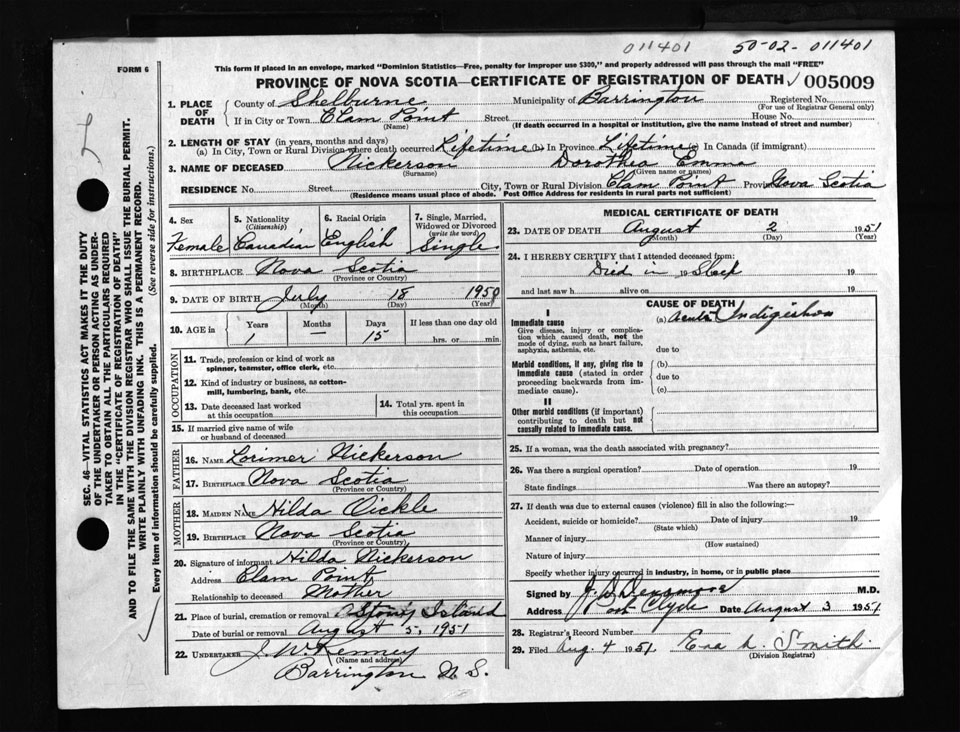 011401 50-02-011401
FORM 6
This form if placed in an envelope, marked "Dominion Statistics—Free, penalty for improper use $300," and properly addressed will pass through the mail "FREE"
PROVINCE OF NOVA SCOTIA—CERTIFICATE OF REGISTRATION OF DEATH 005009
SEC. 46—VITAL STATISTICS ACT MAKES IT THE DUTY
OF THE UNDERTAKER OR PERSON ACTING AS UNDER-
TAKER TO OBTAIN ALL THE PARTICULARS REQUIRED
IN THE "CERTIFICATE OF REGISTRATION OF DEATH"
AND TO FILE THE SAME WITH THE DIVISION REGISTRAR WHO SHALL ISSUE THE BURIAL PERMIT.
WRITE PLAINLY WITH UNFADING INK. THIS IS A PERMANENT RECORD.
Every item of information should be carefully supplied. (See reverse side for instructions.)
1. PLACE OF DEATH
County of Shelburne Municipality of Barrington Registered No.
(For use of Registrar General only)
If in City or Town Clam Point Street House No.
(Name) (If death occurred in a hospital or institution, give the name instead of street and number)
2. LENGTH OF STAY (in years, months and days)
(a) In City, Town or Rural Division where death occurred Lifetime (b) In Province Lifetime (c) In Canada (if immigrant)
3. NAME OF DECEASED Nickerson Dorothea Emma
(Surname) (Given name or names)
RESIDENCE No. Street City, Town or Rural Division Clam Point Province Nova Scotia
(Residence means usual place of abode. Post Office Address for residents in rural parts not sufficient)
4. Sex
Female
5. Nationality
(Citizenship)
Canadian
6. Racial Origin
English
7. Single, Married,
Widowed or Divorced
(write the word)
Single
8. BIRTHPLACE Nova Scotia
(Province or Country)
9. DATE OF BIRTH July 18 1950
(Month) (Day) (Year)
10. AGE in
Years Months Days If less than one day old
1 — 15 hrs. or min.
OCCUPATION
11. Trade, profession or kind of work as
spinner, teamster, office clerk, etc.
12. Kind of industry or business, as cotton-
mill, lumbering, bank, etc.
13. Date deceased last worked
at this occupation
14. Total yrs. spent in
this occupation
15. If married give name of wife
or husband of deceased
FATHER
16. NAME Lorimer Nickerson
17. BIRTHPLACE Nova Scotia
(Province or Country)
MOTHER
18. MAIDEN NAME Hilda Nickle
19. BIRTHPLACE Nova Scotia
(Province or Country)
20. Signature of informant Hilda Nickerson
Address Clam Point
Relationship to deceased Mother
21. Place of burial, cremation or removal Stoney Island
Date of burial or removal August 5, 1951
22. UNDERTAKER J. W. Kenney
(Name and address)
Barrington N. S.
MEDICAL CERTIFICATE OF DEATH
23. DATE OF DEATH August 2 1951
(Month) (Day) (Year)
24. I HEREBY CERTIFY that I attended deceased from:
Died in 19 Sleep 19
and last saw h alive on 19
CAUSE OF DEATH
I
Immediate cause (a) Acute Indigestion
Give disease, injury or complica-
tion which caused death, not the
mode of dying, such as heart failure,
asphyxia, asthenia, etc.
due to
Morbid conditions, if any, giving rise to (b)
immediate cause (stated in order due to
proceeding backwards from im-
mediate cause). (c)
II
Other morbid conditions (if important)
contributing to death but not
causally related to immediate cause.
25. If a woman, was the death associated with pregnancy?
26. Was there a surgical operation? Date of operation 19
State findings Was there an autopsy?
27. If death was due to external causes (violence) fill in also the following:—
Accident, suicide or homicide? Date of injury 19
(State which)
Manner of injury
(How sustained)
Nature of injury
Specify whether injury occurred in industry, in home, or in public place
Signed by J. D. Densmore M.D.
Address Port Clyde Date August 3 1951
28. Registrar's Record Number
29. Filed Aug. 4 1951 Smith
(Division Registrar)